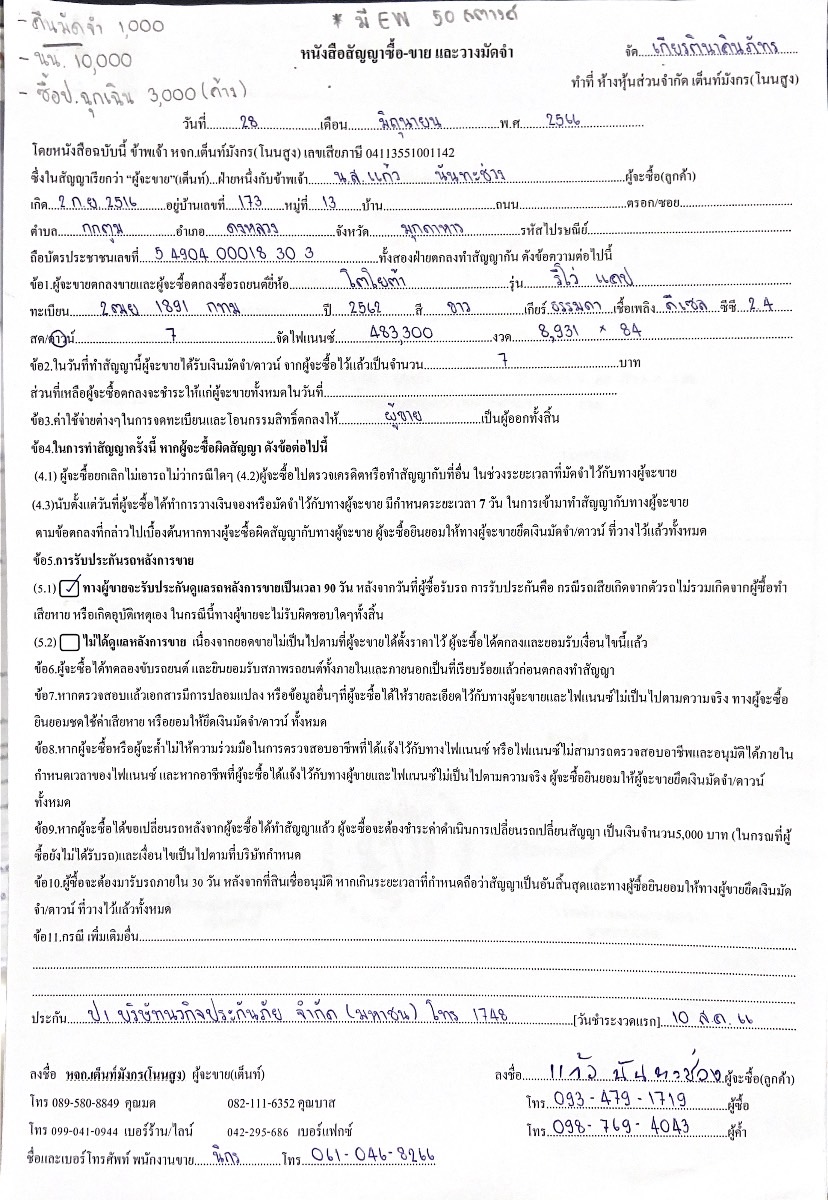 - คืนมัดจำ 1,000
* มี EW 50 สตางค์
- นน. 10,000
หนังสือสัญญาซื้อ-ขาย และวางมัดจำ
จัด...เกียรตินาคินภัทร
- ซื้อป.ฉุกเฉิน 3,000 (ค้าง)
ทำที่ ห้างหุ้นส่วนจำกัด เต็นท์มังกร(โนนสูง)
วันที่ 28 เดือน มิถุนายน พ.ศ 2566
โดยหนังสือฉบับนี้ ข้าพเจ้า หจก.เต็นท์มังกร(โนนสูง) เลขเสียภาษี 04113551001142
ซึ่งในสัญญาเรียกว่า "ผู้จะขาย"(เต็นท์)...ฝ่ายหนึ่งกับข้าพเจ้า น.ส.แก้ว นันทะช่วง ผู้จะซื้อ(ลูกค้า)
เกิด 2 ก.ย. 2516 อยู่บ้านเลขที่ 173 หมู่ที่ 13 บ้าน ถนน ตรอก/ซอย
ตำบล กกตูม อำเภอ ดงหลวง จังหวัด มุกดาหาร รหัสไปรษณีย์
ถือบัตรประชาชนเลขที่ 5 4904 00018 30 3 ทั้งสองฝ่ายตกลงทำสัญญากัน ดังข้อความต่อไปนี้
ข้อ1.ผู้จะขายตกลงขายและผู้จะซื้อตกลงซื้อรถยนต์ยี่ห้อ โตโยต้า รุ่น รีโว่ แคป
ทะเบียน 2ฒย 1891 กทม ปี 2562 สี ขาว เกียร์ ธรรมดา เชื้อเพลิง ดีเซล ซีซี 2.4
สด/ดาวน์ 7 จัดไฟแนนซ์ 483,300 งวด 8,931 × 84
ข้อ2.ในวันที่ทำสัญญานี้ผู้จะขายได้รับเงินมัดจำ/ดาวน์ จากผู้จะซื้อไว้แล้วเป็นจำนวน 7 บาท
ส่วนที่เหลือผู้จะซื้อตกลงจะชำระให้แก่ผู้จะขายทั้งหมดในวันที่
ข้อ3.ค่าใช้จ่ายต่างๆในการจดทะเบียนและโอนกรรมสิทธิ์ตกลงให้ ผู้ขาย เป็นผู้ออกทั้งสิ้น
ข้อ4.ในการทำสัญญาครั้งนี้ หากผู้จะซื้อผิดสัญญา ดังข้อต่อไปนี้
(4.1) ผู้จะซื้อยกเลิกไม่เอารถไม่ว่ากรณีใดๆ (4.2)ผู้จะซื้อไปตรวจเครดิตหรือทำสัญญากับที่อื่น ในช่วงระยะเวลาที่มัดจำไว้กับทางผู้จะขาย
(4.3)นับตั้งแต่วันที่ผู้จะซื้อได้ทำการวางเงินจองหรือมัดจำไว้กับทางผู้จะขาย มีกำหนดระยะเวลา 7 วัน ในการเข้ามาทำสัญญากับทางผู้จะขาย
ตามข้อตกลงที่กล่าวไปเบื้องต้นหากทางผู้จะซื้อผิดสัญญากับทางผู้จะขาย ผู้จะซื้อยินยอมให้ทางผู้จะขายยึดเงินมัดจำ/ดาวน์ ที่วางไว้แล้วทั้งหมด
ข้อ5.การรับประกันรถหลังการขาย
(5.1) ☑ ทางผู้ขายจะรับประกันดูแลรถหลังการขายเป็นเวลา 90 วัน หลังจากวันที่ผู้ซื้อรับรถ การรับประกันคือ กรณีรถเสียเกิดจากตัวรถไม่รวมเกิดจากผู้ซื้อทำ
เสียหาย หรือเกิดอุบัติเหตุเอง ในกรณีนี้ทางผู้ขายจะไม่รับผิดชอบใดๆทั้งสิ้น
(5.2) ☐ ไม่ได้ดูแลหลังการขาย เนื่องจากยอดขายไม่เป็นไปตามที่ผู้จะขายได้ตั้งราคาไว้ ผู้จะซื้อได้ตกลงและยอมรับเงื่อนไขนี้แล้ว
ข้อ6.ผู้จะซื้อได้ทดลองขับรถยนต์ และยินยอมรับสภาพรถยนต์ทั้งภายในและภายนอกเป็นที่เรียบร้อยแล้วก่อนตกลงทำสัญญา
ข้อ7.หากตรวจสอบแล้วเอกสารมีการปลอมแปลง หรือข้อมูลอื่นๆที่ผู้จะซื้อได้ให้รายละเอียดไว้กับทางผู้จะขายและไฟแนนซ์ไม่เป็นไปตามความจริง ทางผู้จะซื้อ
ยินยอมชดใช้ค่าเสียหาย หรือยอมให้ยึดเงินมัดจำ/ดาวน์ ทั้งหมด
ข้อ8.หากผู้จะซื้อหรือผู้จะค้ำไม่ให้ความร่วมมือในการตรวจสอบอาชีพที่ได้แจ้งไว้กับทางไฟแนนซ์ หรือไฟแนนซ์ไม่สามารถตรวจสอบอาชีพและอนุมัติได้ภายใน
กำหนดเวลาของไฟแนนซ์ และหากอาชีพที่ผู้จะซื้อได้แจ้งไว้กับทางผู้ขายและไฟแนนซ์ไม่เป็นไปตามความจริง ผู้จะซื้อยินยอมให้ผู้จะขายยึดเงินมัดจำ/ดาวน์
ทั้งหมด
ข้อ9.หากผู้จะซื้อได้ขอเปลี่ยนรถหลังจากผู้จะซื้อได้ทำสัญญาแล้ว ผู้จะซื้อจะต้องชำระค่าดำเนินการเปลี่ยนรถเปลี่ยนสัญญา เป็นเงินจำนวน5,000 บาท (ในกรณที่ผู้
ซื้อยังไม่ได้รับรถ)และเงื่อนไขเป็นไปตามที่บริษัทกำหนด
ข้อ10.ผู้ซื้อจะต้องมารับรถภายใน 30 วัน หลังจากที่สินเชื่ออนุมัติ หากเกินระยะเวลาที่กำหนดถือว่าสัญญาเป็นอันสิ้นสุดและทางผู้ซื้อยินยอมให้ทางผู้ขายยึดเงินมัด
จำ/ดาวน์ ที่วางไว้แล้วทั้งหมด
ข้อ11.กรณี เพิ่มเติมอื่น
ประกัน ป1 บริษัทนวกิจประกันภัย จำกัด (มหาชน) โทร 1748 [วันชำระงวดแรก] 10 ส.ค. 66
ลงชื่อ หจก.เต็นท์มังกร(โนนสูง) ผู้จะขาย(เต็นท์) ลงชื่อ แก้ว นันทะช่วง ผู้จะซื้อ(ลูกค้า)
โทร 089-580-8849 คุณมด 082-111-6352 คุณบาส โทร 093-479-1719 ผู้ซื้อ
โทร 099-041-0944 เบอร์ร้าน/ไลน์ 042-295-686 เบอร์แฟกซ์ โทร 098-769-4043 ผู้ค้ำ
ชื่อและเบอร์โทรศัพท์ พนักงานขาย นิกร โทร 061-046-8266